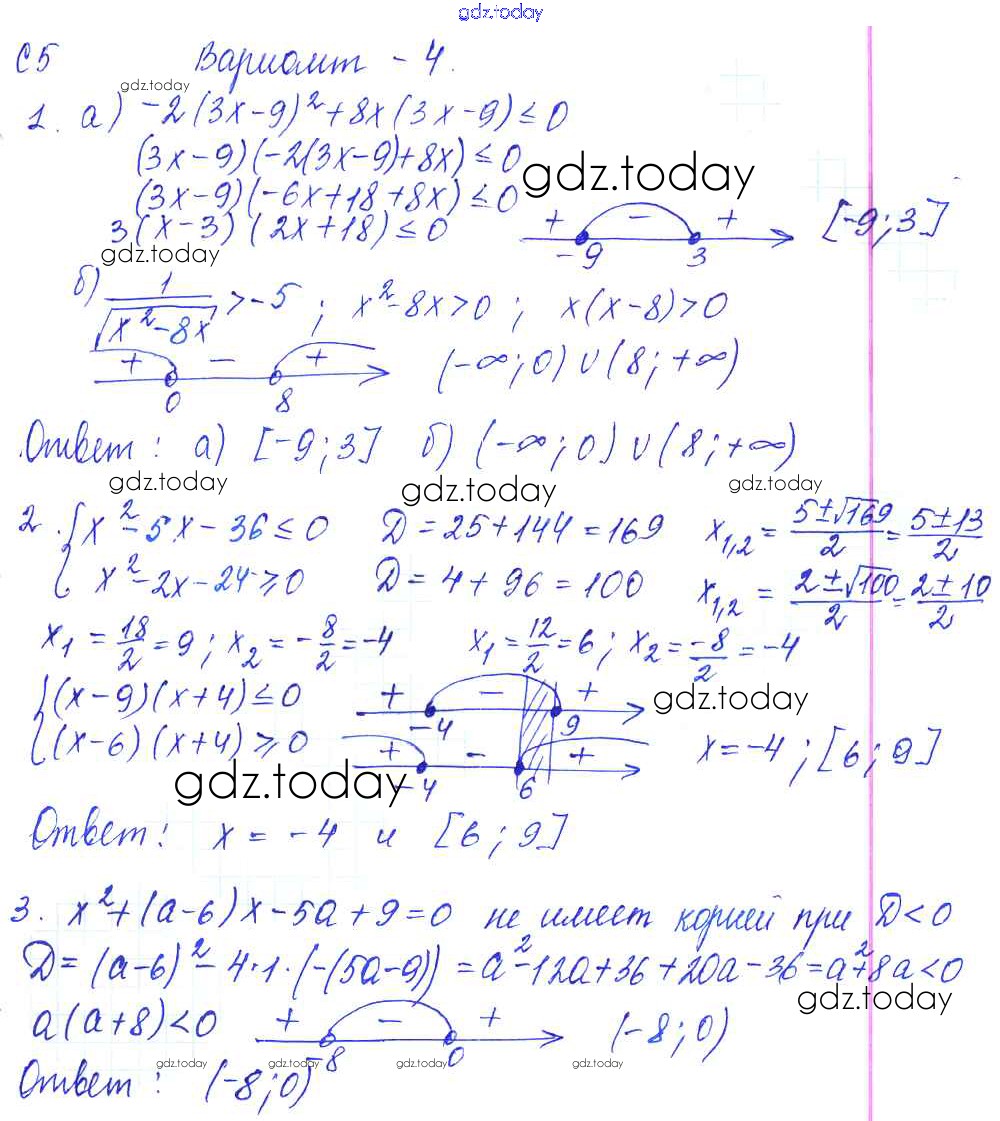 gdz.today
С5 Вариант - 4.
gdz.today
1. а) -2(3x-9)²+8x(3x-9)≤0
(3x-9)(-2(3x-9)+8x)≤0
gdz.today
(3x-9)(-6x+18+8x)≤0
3(x-3)(2x+18)≤0 + - + -9 3 [-9;3]
gdz.today
б) 1/√(x²-8x) >-5 ; x²-8x>0 ; x(x-8)>0
+ - + 0 8 (-∞;0)∪(8;+∞)
Ответ: а) [-9;3] б) (-∞;0)∪(8;+∞)
gdz.today gdz.today gdz.today
2. {x²-5x-36≤0 D=25+144=169 x₁,₂=(5±√169)/2=(5±13)/2
x²-2x-24≥0 D=4+96=100 x₁,₂=(2±√100)/2=(2±10)/2
x₁=18/2=9; x₂=-8/2=-4 x₁=12/2=6; x₂=-8/2=-4
{(x-9)(x+4)≤0 + - + -4 9 gdz.today
(x-6)(x+4)≥0 + - + -4 6 x=-4;[6;9]
gdz.today
Ответ: x=-4 и [6;9]
3. x²+(a-6)x-5a+9=0 не имеет корней при D<0
D=(a-6)²-4·1·(-(5a-9))=a²-12a+36+20a-36=a²+8a<0
gdz.today
a(a+8)<0 + - + -8 0 (-8;0)
gdz.today gdz.today gdz.today gdz.today
Ответ: (-8;0)